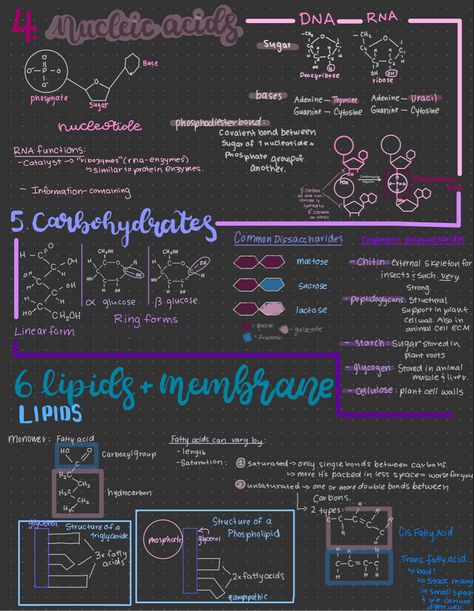 4. Nucleic acids
DNA
RNA
Sugar
Deoxyribose
ribose
Base
phosphate
Sugar
nucleotide
bases
Adenine — Thymine
Guanine — Cytosine
Adenine — Uracil
Guanine — Cytosine
phosphodiester bond:
Covalent bond between
Sugar of 1 nucleotide +
Phosphate group of
another.
RNA functions:
- Catalyst → "ribozymes" (rna-enzymes)
↳ similar to protein enzymes.
- Information-containing
5. Carbohydrates
Linear form
α glucose
β glucose
Ring forms
Common Dissaccharides
maltose
sucrose
lactose
= glucose
= galactose
= fructose
Important polysaccharides
- Chitin: External skeleton for
insects & such. Very
strong.
- Peptidoglycans: Structural
Support in plant
cell wall. Also in
animal cell ECM
- starch: Sugar stored in
plant roots
- glycogen: Stored in animal
muscle & liver.
- Cellulose: plant cell walls
6. lipids + membrane
LIPIDS
monomer: Fatty acid
Carboxyl group
hydrocarbon
Fatty acids can vary by:
- length
- Saturation:
1 saturated → only single bonds between carbons.
↳ more H's packed in less space = worse for you
2 unsaturated → one or more double bonds between
Carbons.
↳ 2 types:
Cis Fatty Acid
Trans fatty acid
↳ bad!
↳ Stack many
in small space
& we cannot
glycerol
Structure of a
triglyceride
3x fatty
acids
Structure of a
Phospholipid
phosphate
glycerol
2x fatty acids